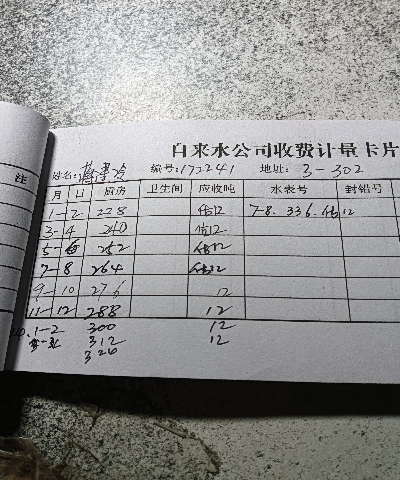 自来水公司收费计量卡片
注 姓名: 编号:172241 地址: 3-302
月 日 厨房 卫生间 应收吨 水表号 封铅号
1-2 228 估12 7-8. 336. 估12
3-4 240 估12
5-6 252 估12
7-8 264 估12
9-10 276 12
11-12 288 12
1-2 300 12
312 12